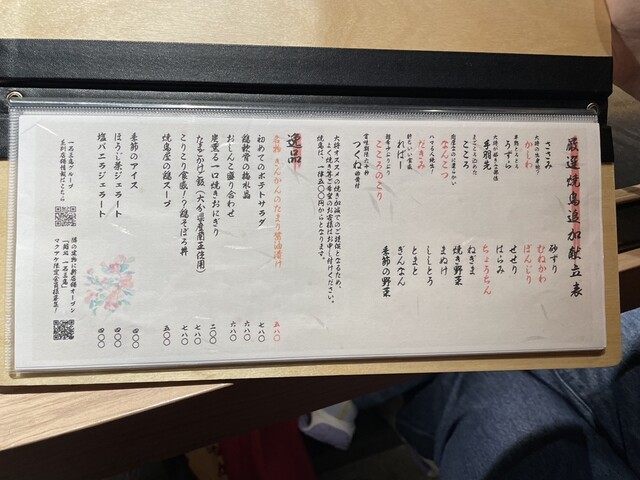 厳選焼鳥追加献立表
ささみ
かしわ
こころ
手羽先
なんこつ
ればー
こころのとり
つくね
砂ずり
むねかわ
ぼんじり
せせり
はらみ
ちょうちん
ねぎま
焼き野菜
まぬけ
ししとう
とまと
ぎんなん
季節の野菜
大将オススメの焼き加減でのご提供となるため、
よく焼き等ご希望のお客様はお申し付けください。
焼鳥は、一律三〇〇円からとなります。
逸品
きんかんのたまり醤油漬け 五八〇
初めてのポテトサラダ 七八〇
鶏軟骨の梅水晶 六八〇
おしんこ盛り合わせ 六八〇
炭薫る一口焼きおにぎり 二〇〇
たまごかけご飯(大分県産蘭王使用) 七八〇
こりこり食感！？鶏そぼろ丼 七八〇
焼鳥屋の鶏スープ 五〇〇
季節のアイス 四〇〇
ほうじ茶ジェラート 四〇〇
塩バニラジェラート 四〇〇
隣の建物に新店舗オープン
マクアケ限定会員様募集！
一石三鳥グループ
系列店舗情報はこちら